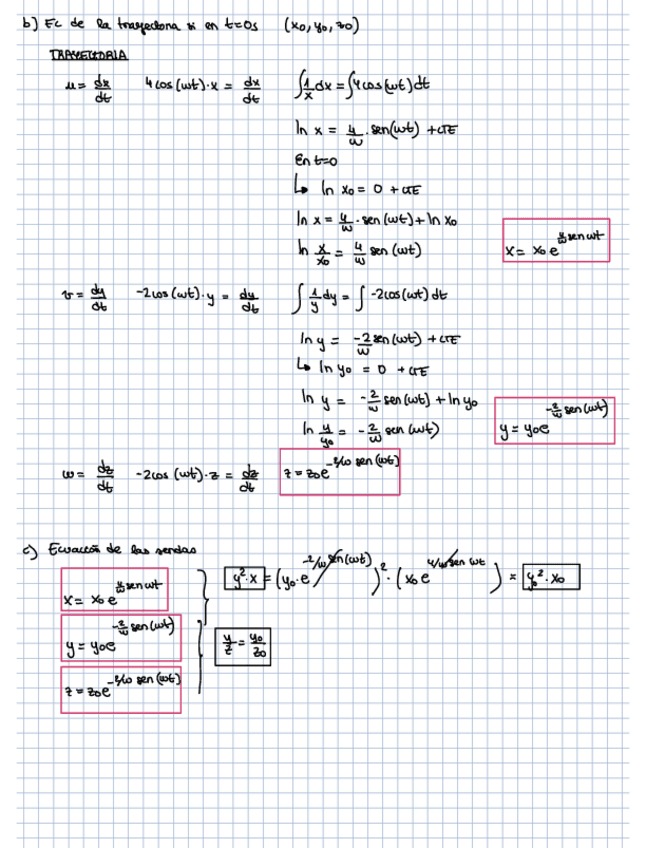 b) Ec de la trayectoria si en t=0s (x₀, y₀, z₀)
TRAYECTORIA
u = dx/dt 4cos(ωt)·x = dx/dt ∫1/x dx = ∫4cos(ωt)dt
ln x = 4/ω · sen(ωt) + CTE
En t=0
↳ ln x₀ = 0 + CTE
ln x = 4/ω · sen(ωt) + ln x₀
ln x/x₀ = 4/ω sen(ωt)
x = x₀ e^(4/ω sen ωt)
v = dy/dt -2cos(ωt)·y = dy/dt ∫1/y dy = ∫-2cos(ωt)dt
ln y = -2/ω sen(ωt) + CTE
↳ ln y₀ = 0 + CTE
ln y = -2/ω sen(ωt) + ln y₀
ln y/y₀ = -2/ω sen(ωt)
y = y₀e^(-2/ω sen(ωt))
ω = dz/dt -2cos(ωt)·z = dz/dt z = z₀e^(-2/ω sen(ωt))
c) Ecuación de las sendas
x = x₀ e^(4/ω sen ωt)
y = y₀e^(-2/ω sen(ωt))
z = z₀e^(-2/ω sen(ωt))
y²·x = (y₀·e^(-2/ω sen(ωt)))² · (x₀e^(4/ω sen ωt)) = y₀²·x₀
y/z = y₀/z₀